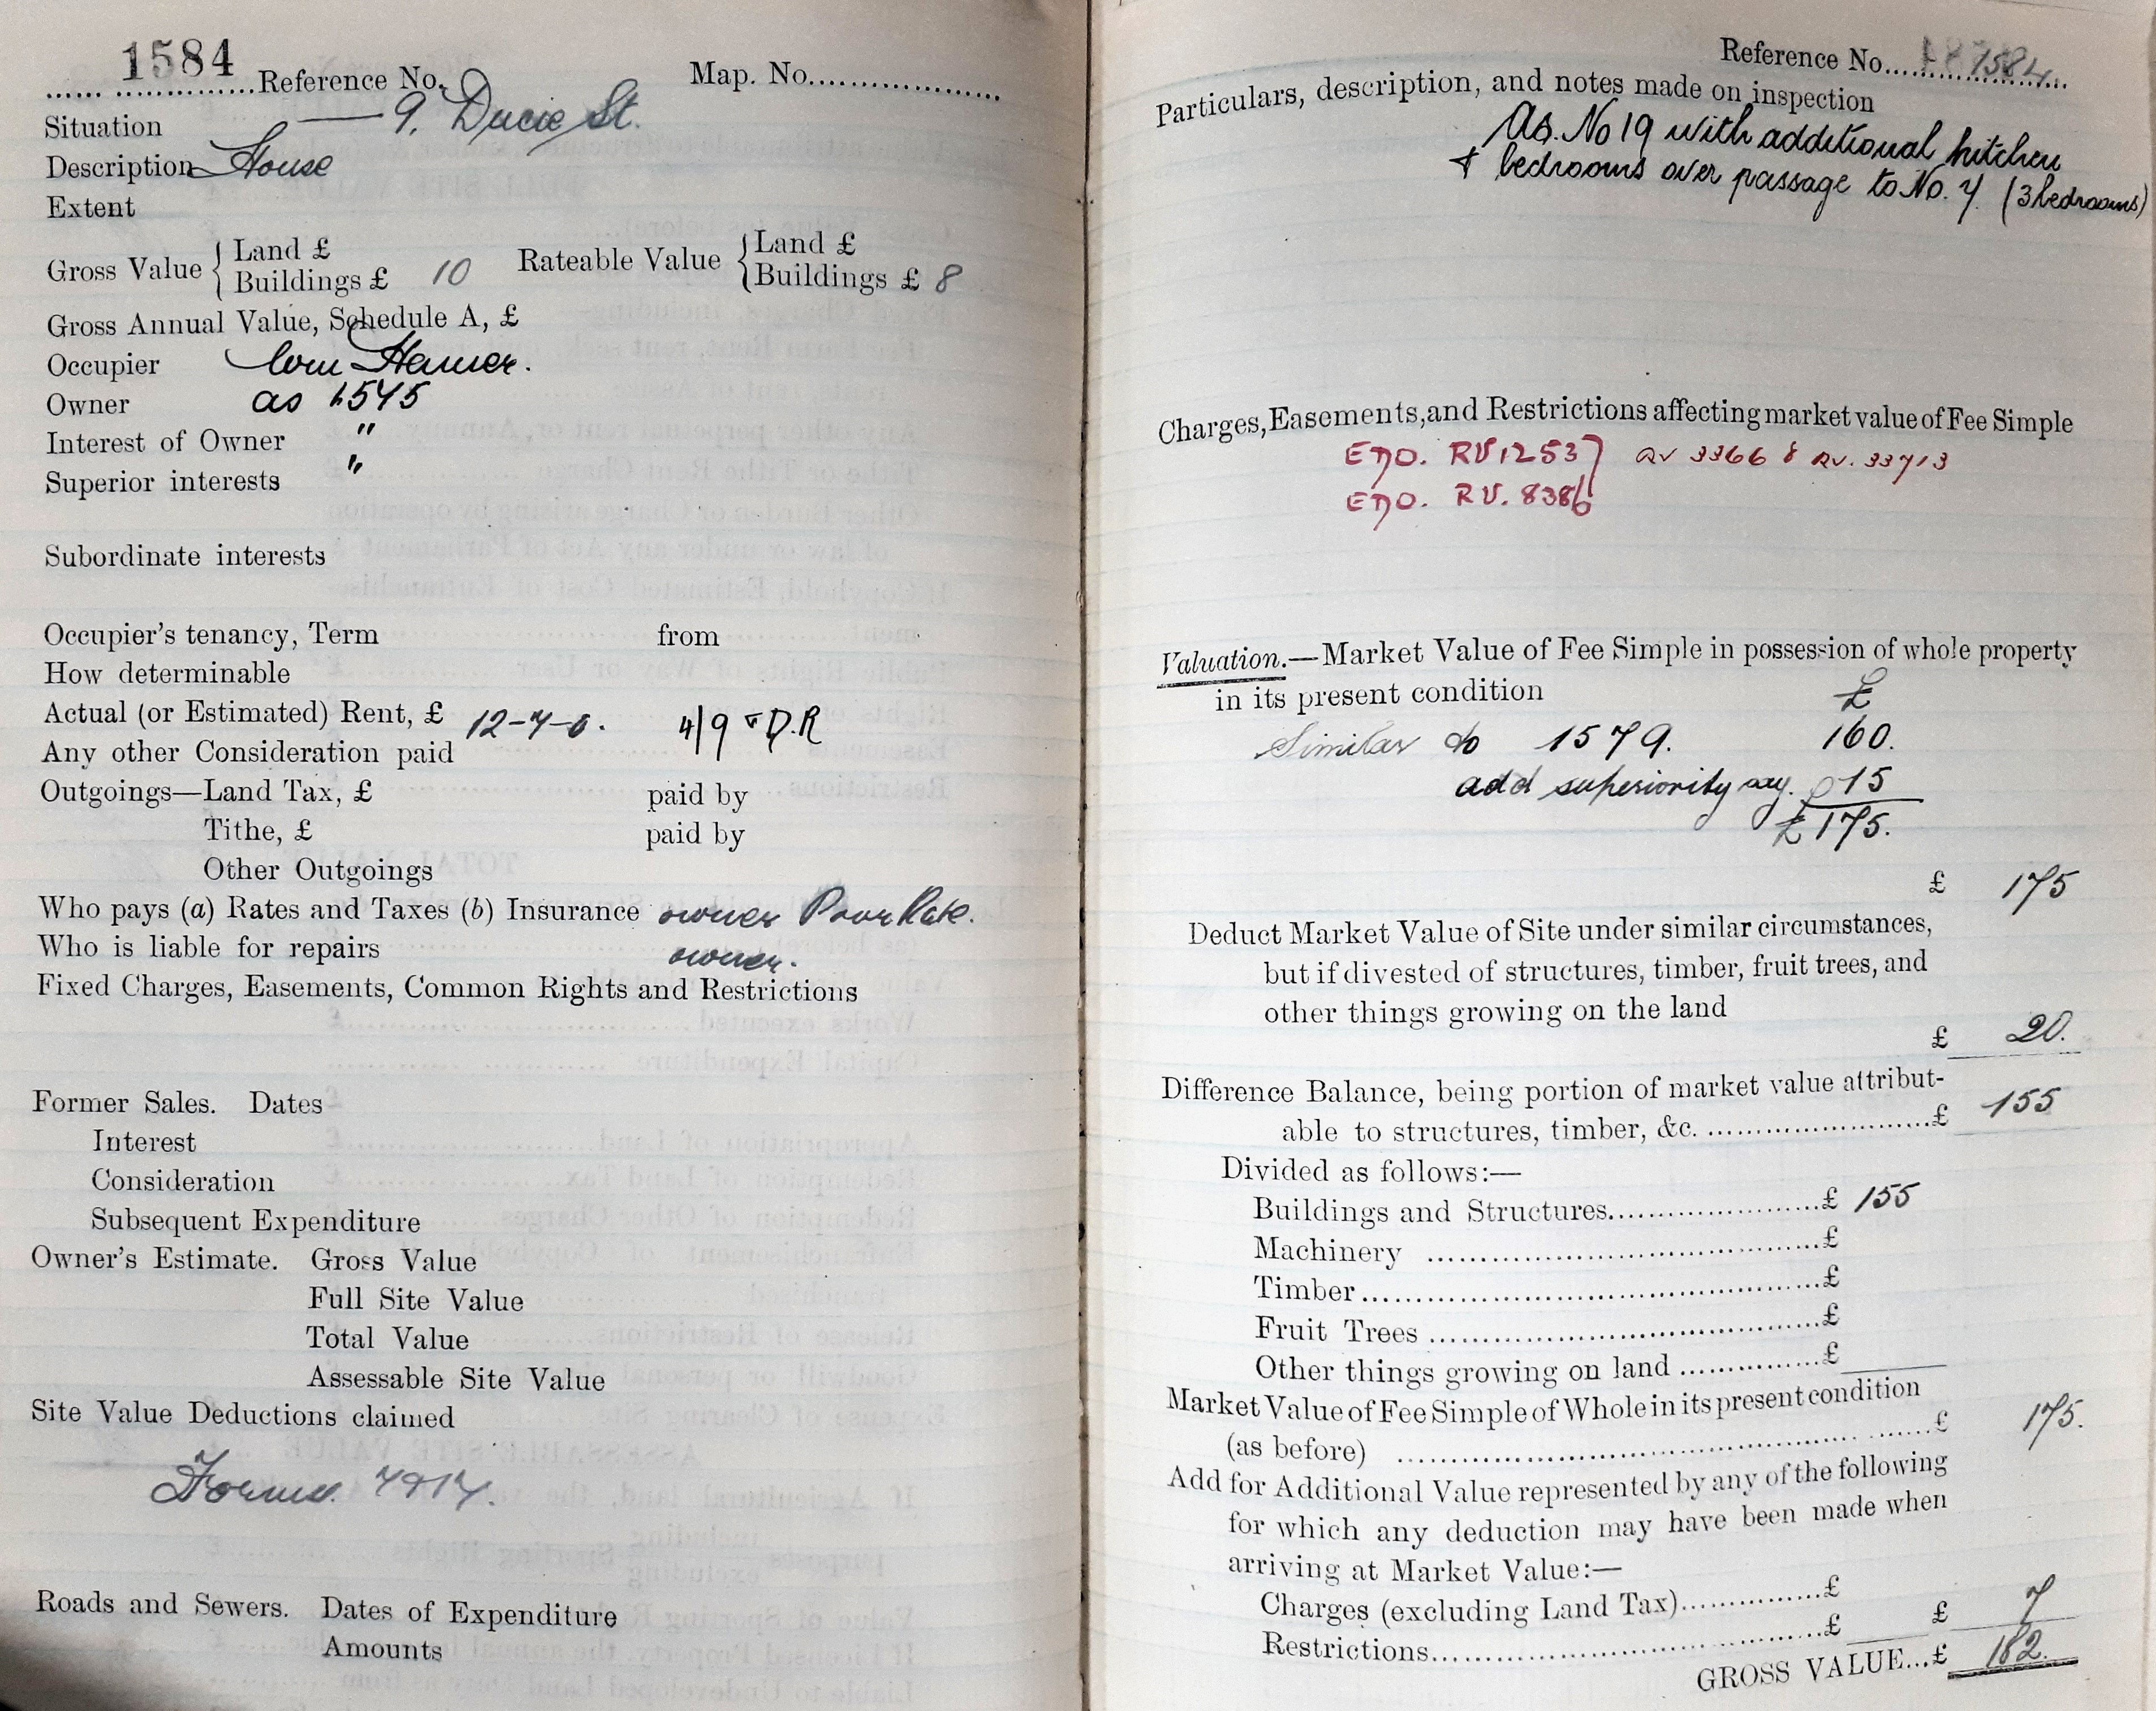 1584
Reference No. Map. No.
Situation 9, Ducie St.
Description House
Extent
Gross Value { Land £ Rateable Value { Land £
Buildings £ 10 Buildings £ 8
Gross Annual Value, Schedule A, £
Occupier Wm Hamer.
Owner as 1545
Interest of Owner "
Superior interests "
Subordinate interests
Occupier's tenancy, Term from
How determinable
Actual (or Estimated) Rent, £ 12-7-0. 4/9 D.R
Any other Consideration paid
Outgoings—Land Tax, £ paid by
Tithe, £ paid by
Other Outgoings
Who pays (a) Rates and Taxes (b) Insurance owner Poor Rate.
Who is liable for repairs owner.
Fixed Charges, Easements, Common Rights and Restrictions
Former Sales. Dates
Interest
Consideration
Subsequent Expenditure
Owner's Estimate. Gross Value
Full Site Value
Total Value
Assessable Site Value
Site Value Deductions claimed
Roads and Sewers. Dates of Expenditure
Amounts
Reference No. 1584
Particulars, description, and notes made on inspection
As. No 19 with additional kitchen
& bedrooms over passage to No. 7 (3 bedrooms)
Charges, Easements, and Restrictions affecting market value of Fee Simple
RV 12537 RV 3366 & RV. 33713
RV. 8386
Valuation.—Market Value of Fee Simple in possession of whole property
in its present condition £
Similar to 1579. 160.
add superiority say. 15
£175.
£ 175
Deduct Market Value of Site under similar circumstances,
but if divested of structures, timber, fruit trees, and
other things growing on the land
£ 20.
Difference Balance, being portion of market value attribut-
able to structures, timber, &c. £ 155
Divided as follows:—
Buildings and Structures £ 155
Machinery £
Timber £
Fruit Trees £
Other things growing on land £
Market Value of Fee Simple of Whole in its present condition
(as before) £ 175.
Add for Additional Value represented by any of the following
for which any deduction may have been made when
arriving at Market Value:—
Charges (excluding Land Tax) £
Restrictions £ £ 7
GROSS VALUE...£ 182.